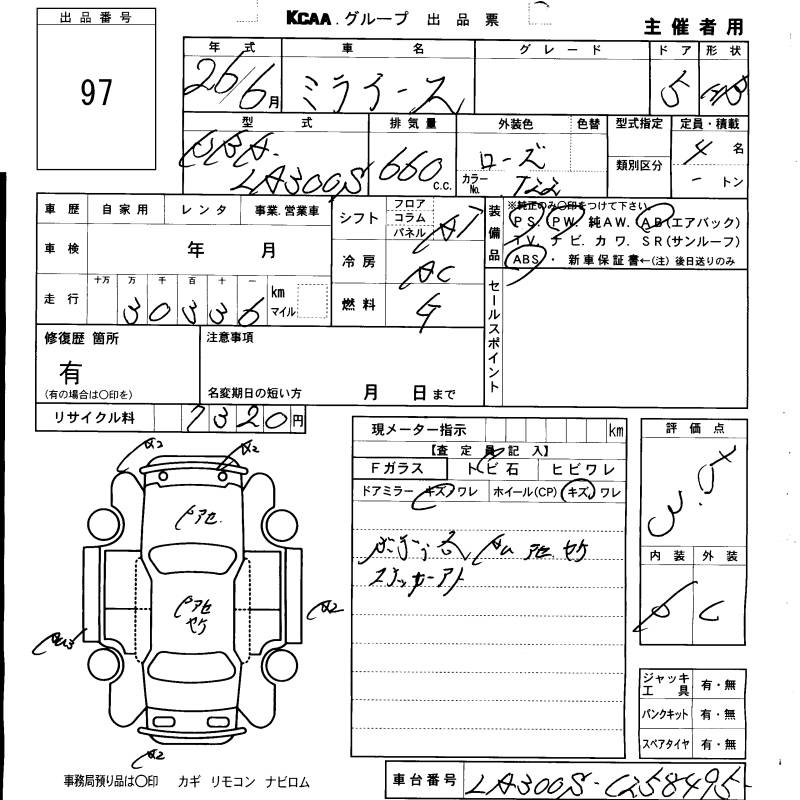 KCAA.グループ 出品票
主催者用
出品番号
97
年式 車名 グレード ドア 形状
26/6月 ミライース 5
型式 排気量 外装色 色替 型式指定 定員・積載
DBA- LA300S 660 c.c. ローズ カラーNo. T22 類別区分 4名
- トン
車歴 自家用 レンタ 事業.営業車
シフト フロア コラム パネル AT
装備品 ※純正のみ〇印をつけて下さい。
PS. PW. 純AW. AB(エアバック)
TV. ナビ. カワ. SR(サンルーフ)
ABS・ 新車保証書←(注)後日送りのみ
車検 年 月
冷房 AC
走行 十万 万 千 百 十 一
30336 km マイル
燃料 G
セールスポイント
修復歴 箇所
有
(有の場合は〇印を)
注意事項
名変期日の短い方 月 日まで
リサイクル料 7320円
現メーター指示 km
【査定員記入】
Fガラス トビ石 ヒビワレ
ドアミラー キズ ワレ ホイール(CP) キズ ワレ
評価点
3.5
内装 外装
C
A2
A2
A2
A2
ステッカーアト
ジャッキ工具 有・無
パンクキット 有・無
スペアタイヤ 有・無
事務局預り品は〇印 カギ リモコン ナビロム
車台番号 LA300S-0258495-